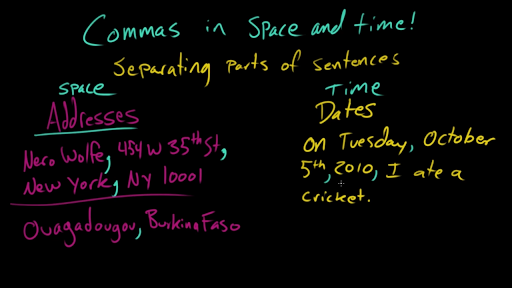 Commas in Space and time!
Separating parts of sentences
SPACE
Addresses
Nero Wolfe, 454 W 35th St,
New York, NY 10001
Ouagadougou, Burkina Faso
TIME
Dates
On Tuesday, October
5th, 2010, I ate a
cricket.